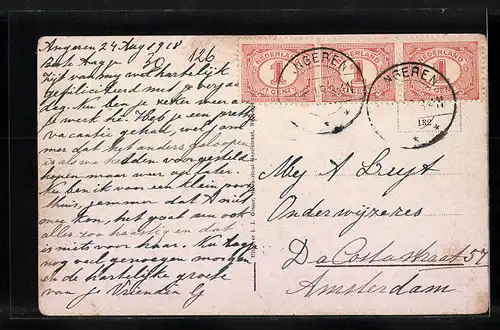 Angeren 24 Aug 1918
Beste 30 126
Zijt van my wel hartelijk
gefeliciteerd met je verjaar
dag. Nu ben je zeker weer aan
je werk Heb je een prettige
vacantie gehad, wel jam
mer dat het anders geloopen
is als we hadden voorgesteld
hopen maar weer op later.
Nu ben ik voor een klein poosje
thuis, jammer dat A niet
mee kon, het gaat nu ook
alles zoo haastig en dat
is niets voor haar. Nu
nog veel genoegen
en de hartelijke groete
van je Vriendin
NEDERLAND
1
CENT
NEDERLAND
1
CENT
NEDERLAND
1
CENT
ANGEREN
ANGEREN
Mej A
Onderwijzeres
Da Costastraat 57
Amsterdam